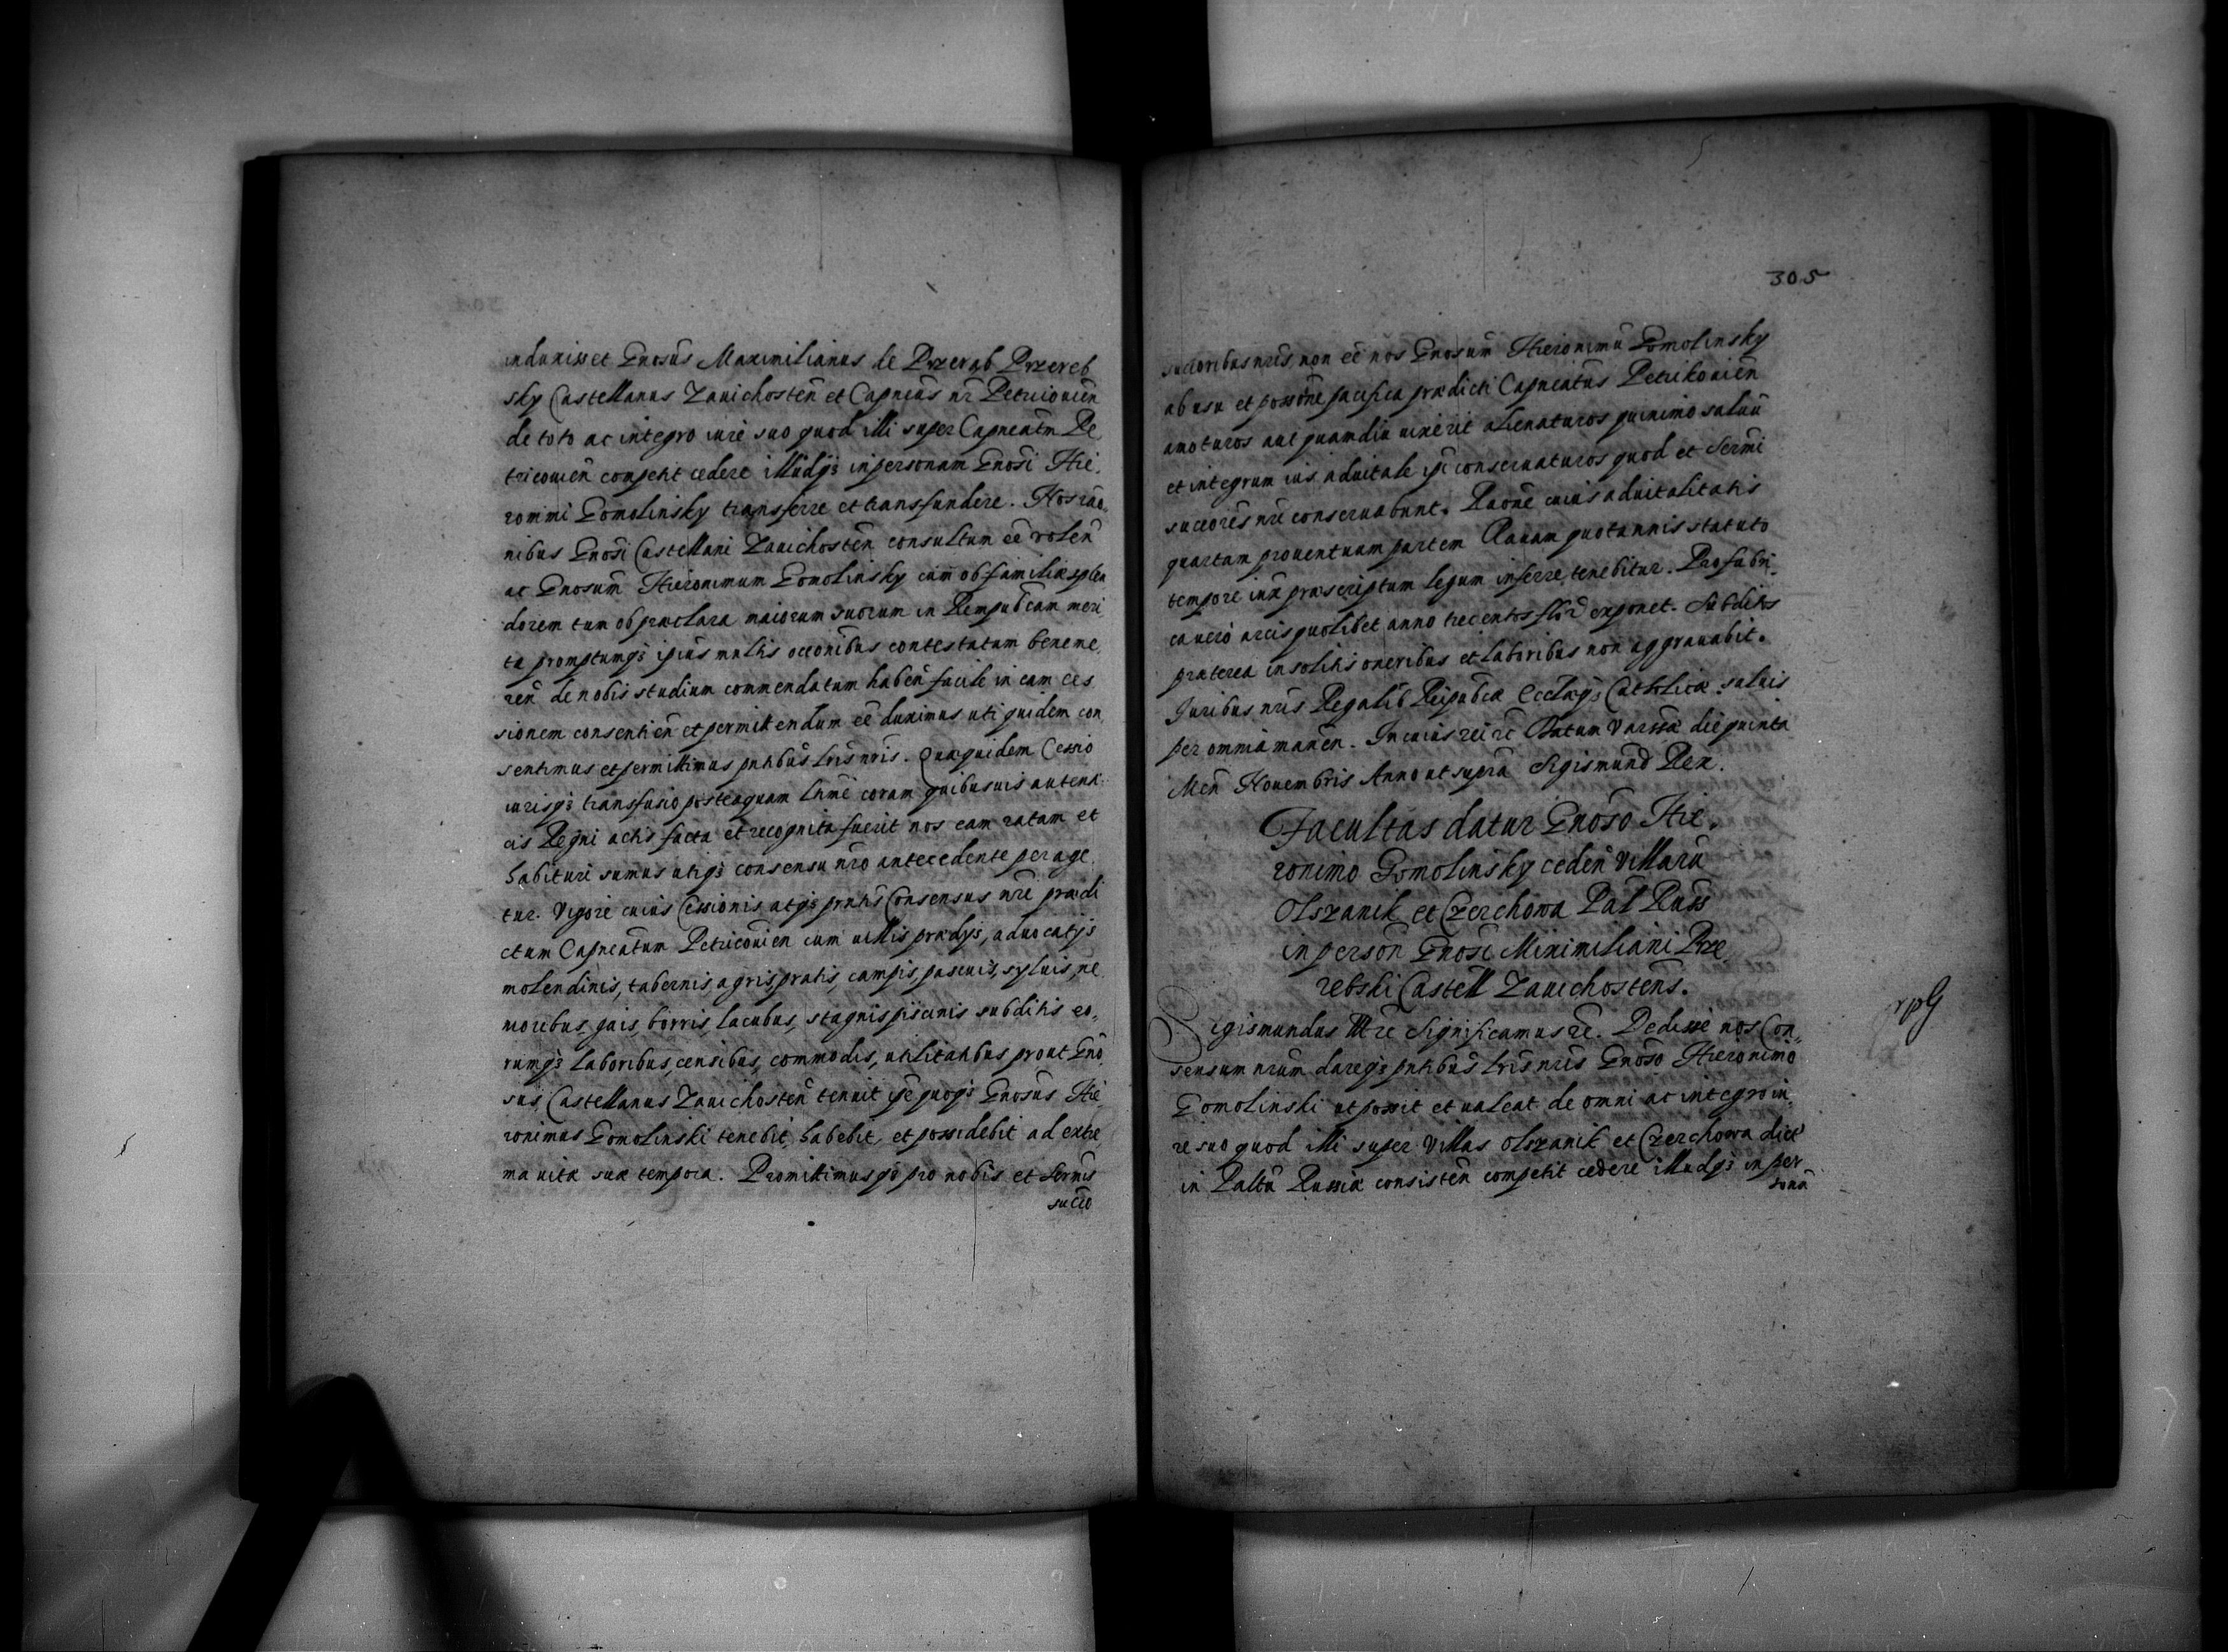 induxisset Gnosus Maximilianus de Przerąb Przereb
sky Castellanus Zauichosten̄ et Capneus nr̄ Petricouien̄
de toto ac integro iure suo quod illi super Capneatm Pe,
tricouien̄ competit cedere illudqз in personam Gnosi Hie,
ronimi Gomolinsky transferre et transfundere. Nos rāo,
nibus Gnosi Castellani Zauichosten̄ consultum eē volen̄
ac Gnosum̄ Hieronimum Gomolinsky cum ob familiæ splen
dorem tum ob præclara maiorum suorum in Rempubcam meri
ta promptumqз ipius multis occōnibus contestatum beneme,
ren̄ de nobis studium commendatum haben̄ facile in eam ces
sionem consentien̄ et permittendum eē duximus uti quidem con
sentimus et permittimus pn̄tibus lr̄is nr̄is. Quæquidem Cessio
iurisqз transfusio posteaquam lt̄ime coram quibusuis autenti
cis Regni actis facta et recognita fuerit nos eam ratam et
habituri sumus utiqз consensu nr̄o antecedente perage
tur. Vigore cuius Cessionis atqз pn̄tis Consensus nr̄i prædi
ctum Capneatum Petricouien̄ cum villis prædys, aduocatys
molendinis, tabernis, agris, pratis, campis, pascuis, syluis, ne
moribus, gais, borris, lacubus, stagnis piscinis subditis eo,
rumqз laboribus, censibus, commodis, utilitatibus prout Gno
sus Castellanus Zauichosten̄ tenuit ipē quoqз Gnosus Hie
ronimus Gomolinski tenebit, habebit, et possidebit ad extre
ma vitæ suæ tempora. Promittimusqз pro nobis et Sermis
succō
305
succoribus nr̄is, non eē nos Gnosum Hieronimū Gomolinsky
ab usu et possōne pacifica prædicti Capneatus Petrikouien̄
amoturos aut quamdiu vixerit alienaturos quinimo saluū
et integrum ius aduitale ipi conseruaturos quod et Sermi
succores nr̄i conseruabunt. Raōne cuius aduitalitatis
quartam prouentuum partem Rauam quotannis statuto
tempore iuxta præscriptum legum inferre tenebitur. Pro fabri,
ca vero arcis quolibet anno trecentos flor̄ exponet. Subditos
præterea insolitis oneribus et laboribus non aggrauabit.
Juribus nr̄is Regalib Reipubcæ Ecclæqз Catholicæ saluis
per omnia manen̄. In cuius rei rc̄ Datum Varssæ die quinta
Men̄ Nouembris Anno ut supra Sigismund Rex.
Facultas datur Gnoso Hie,
ronimo Gomolinsky ceden̄ Villarū
Olszanik et Czerchowa Pal Russ
in person̄ Gnosi Miximiliani Prze
rebski Castell Zauichostens.
Sigismundus IIIre Significamus rc̄. Dedisse nos Con,
sensum nr̄um dareqз pn̄tibus lr̄is nr̄is Gnoso Hieronimo
Gomolinski ut possit et ualeat de omni ac integro iu,
re suo quod illi super Villas Olszanik et Czerchowa dict
in Paltu Russiæ consisten̄ competit cedere illudqз in per
sonā